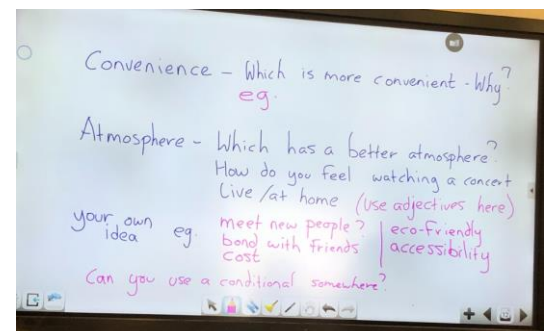 Convenience - Which is more convenient - Why?
eg.
Atmosphere - Which has a better atmosphere?
How do you feel watching a concert
Live/at home (use adjectives here)
your own idea eg. meet new people? eco-friendly
bond with friends accessibility
cost
Can you use a conditional somewhere?